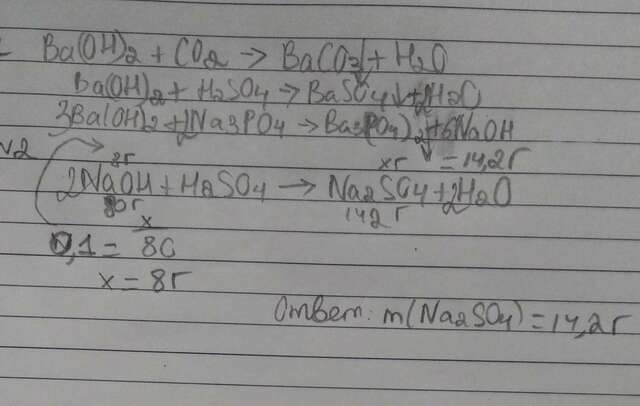 Ba(OH)2 + CO2 → BaCO3↓ + H2O
Ba(OH)2 + H2SO4 → BaSO4↓ + 2H2O
3Ba(OH)2 + 2Na3PO4 → Ba3(PO4)2↓ + 6NaOH
№2
8г xг = 14,2г
2NaOH + H2SO4 → Na2SO4 + 2H2O
80г 142г
0,1 = x/80
x = 8г
Ответ: m(Na2SO4) = 14,2г